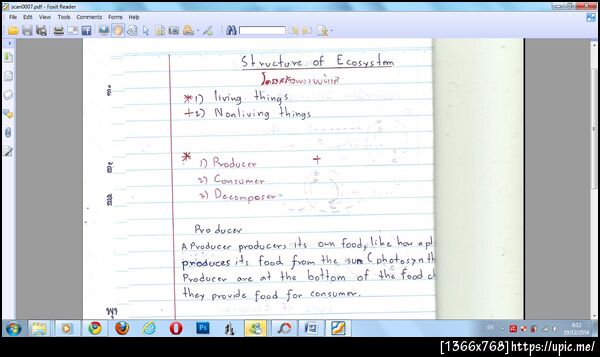 scan0007.pdf - Foxit Reader
File Edit View Tools Comments Forms Help
Structure of Ecosystem
*1) living things
+2) Nonliving things
* 1) Producer +
2) Consumer
3) Decomposer
Producer
A Producer producers its own food, like how a pl
produces its food from the sun ( photosynth
Producer are at the bottom of the food ch
they provide food for consumer.
EN
0:12
19/12/2554
[1366x768]https://upic.me/